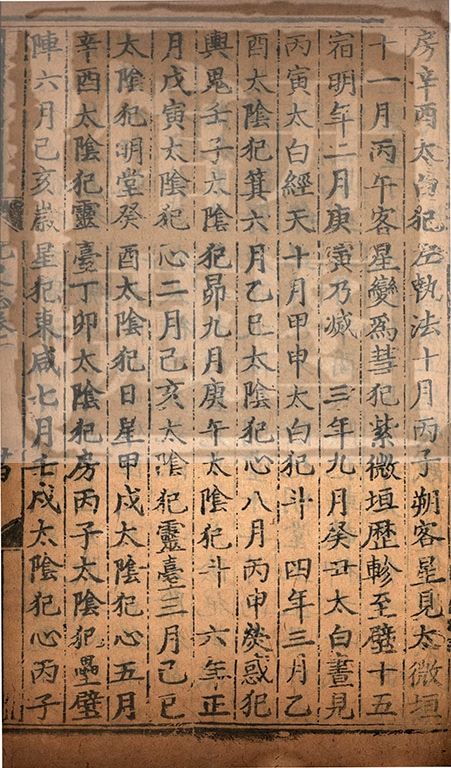 房辛酉太白犯左執法十月丙子朔客星見太微垣
十一月丙午客星變爲彗犯紫微垣歷軫至壁十五
宿明年二月庚寅乃滅　三年九月癸丑太白晝見
丙寅太白經天十月甲申太白犯斗　四年三月乙
酉太陰犯箕六月乙巳太陰犯心八月丙申熒惑犯
輿鬼壬子太陰犯昴九月庚午太陰犯斗　六年正
月戊寅太陰犯心二月己亥太陰犯靈臺三月己巳
太陰犯明堂癸酉太陰犯日星甲戌太陰犯心五月
辛酉太陰犯靈臺丁卯太陰犯房丙子太陰犯壘壁
陣六月己亥歲星犯東咸七月壬戌太陰犯心丙子